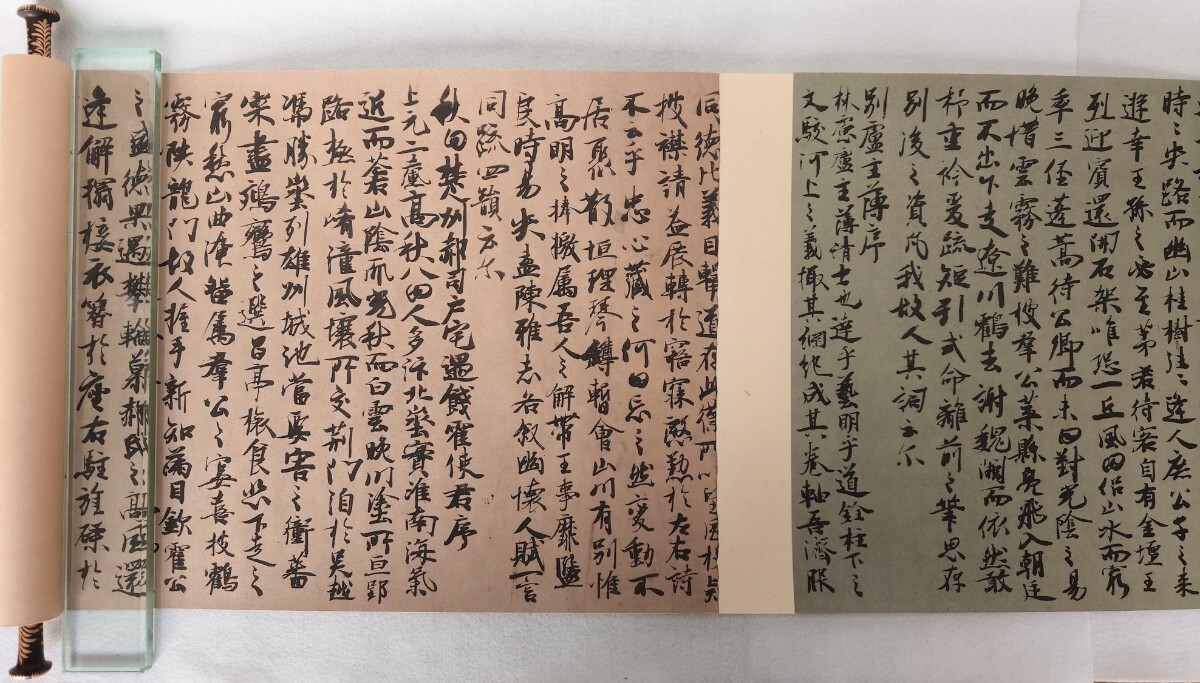 時〻央路而幽山桂樹往〻逢人庶公子之來
遊幸王孫之必至茅君待客自有金壇王
列迎賓還開石架唯恐一丘風月侶山水而窮
年三徑蓬蒿待公卿而未日對光陰之易
晚惜雲霧之難披群公葉縣鳧飛入朝廷
而不出下走遼川鶴去謝魏闕而依然敢
抒重衿爰疏短引式命離前之筆思存
別後之資凡我故人其詞云尒
別盧主薄序
林慮盧主薄清士也達乎藝明乎道銓柱下之
文駁河上之義撮其綱紀成其卷軸吾濟服
同德比義目擊道存此僕所以望風投
披襟請益展轉於寤寐殷懃於左右詩
不云乎忠心藏之何日忘之然變動不
居聚散恒理琴罇暫會山川有別惟
高明之捧檄属吾人之解帶王事靡盬
良時易失盍陳雅志各叙幽懷人賦一言
同疏四韻云尒
秋日楚州郝司戶宅遇餞霍使君序
上元二載高秋八月人多汴北巒實淮南海氣
近而蒼山陰節光秋而白雲晚川塗所亘郢
路極於崤潼風壤所交荊門洎於吳越
馮勝巒列雄州城池當要害之衝寮
寀盡鵷鸞之選昌亭旅食悲下走之
窮愁山曲淹留属羣公之宴喜披鶴
霧陟龍門故人握手新知滿目欽霍公
之盛德果遇攀輪慕郝氏之高風還
逢解榻接衣簪於座右駐旌棨於